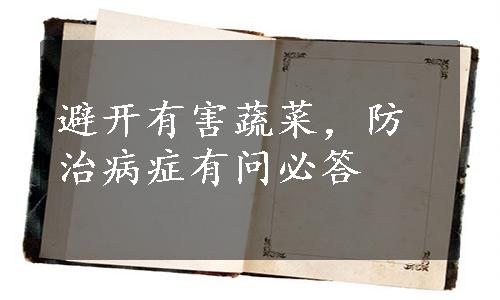 避开有害蔬菜，防
治病症有问必答